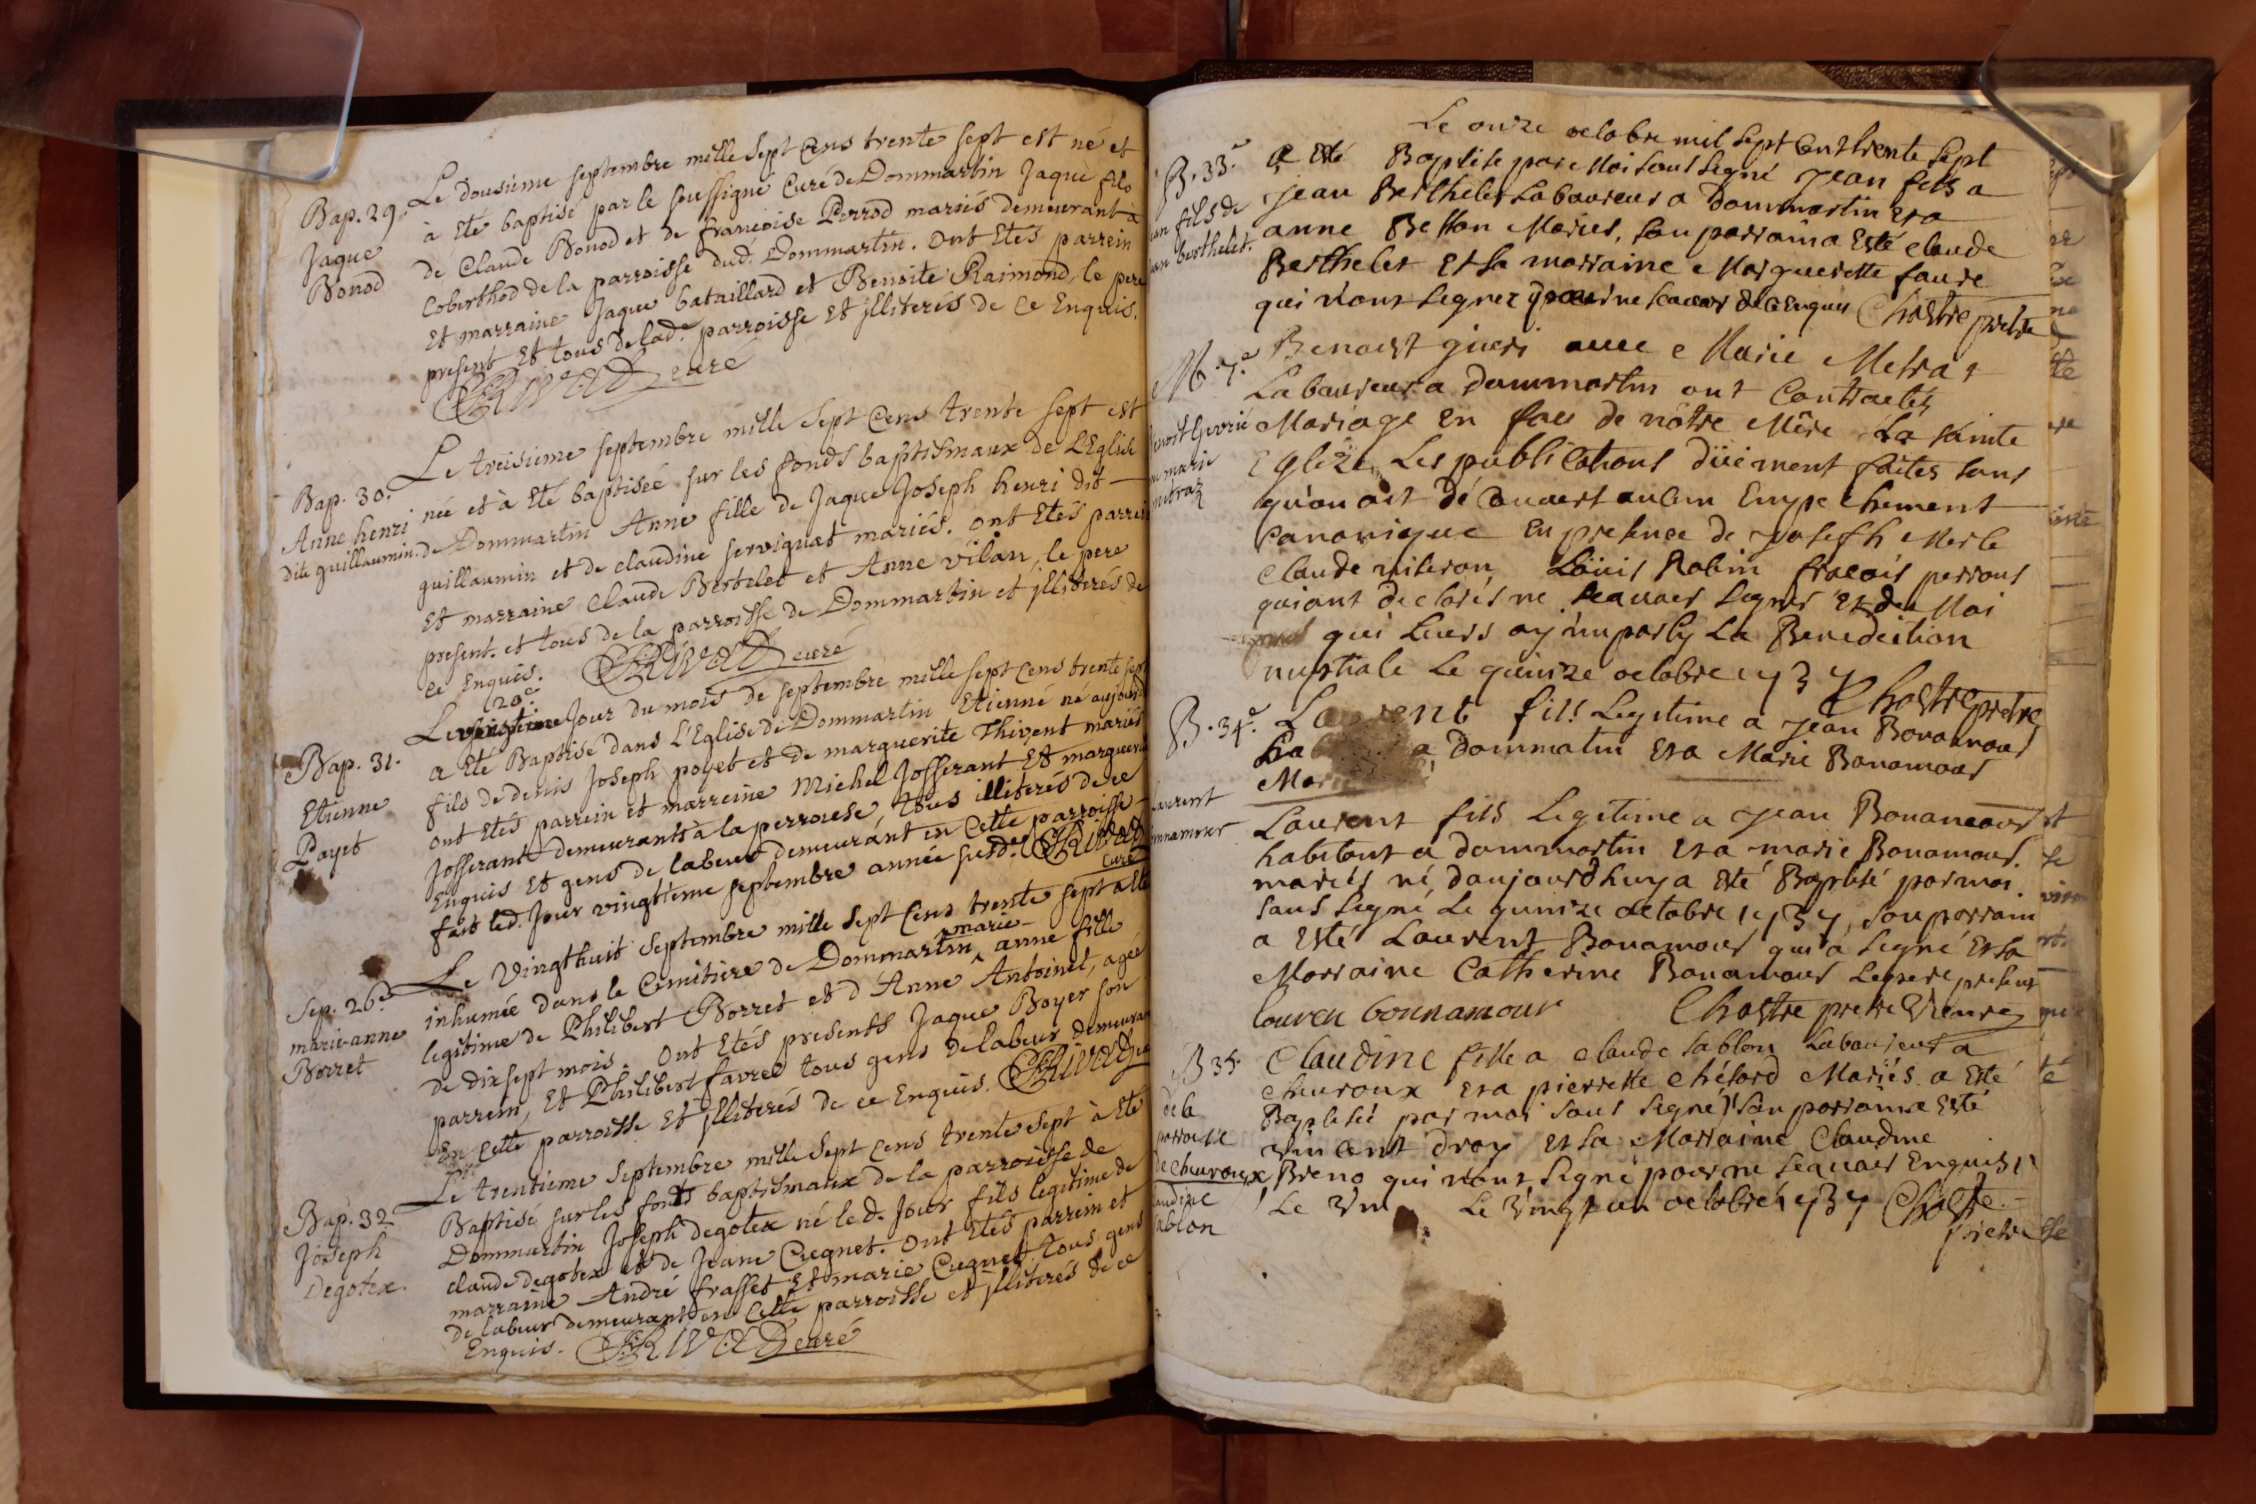 Bap. 29.
Jaque
Bonod
Le dousiéme septembre mille sept cens trente sept est né et
à Ete baptisé par le soussigné Curé de Dommartin Jaque fils
de Claude Bonod et de francoise Perrod mariés demeurant à
Coberthod de la parroisse dud. Dommartin. ont Etés parrein
et marraine Jaque bataillard et Benoite Raimond, le pere
present et tous de lad.e parroisse et jlliterés de ce Enquis.
curé
Bap. 30.
Anne henri
dite guillaumin.
Le treisiéme septembre mille sept cens trente sept est
née et à Eté baptiséé sur les fonds baptismaux de L'Eglise
de Dommartin Anne fille de Jaque Joseph henri dit
guillaumin et de claudine serviquet mariés. ont Etés parrein
et marraine Claude Bertelet et Anne vilan, le pere
present. et tous de la parroisse de Dommartin et jlliterés de
ce Enquis. curé
Bap. 31.
Etienne
Poyet
20.e
Le vingtiéme Jour du mois de septembre mille sept cens trente sept
a Eté Baptisé dans L'Eglise de Dommartin Etienne né aujourd
fils de denis Joseph poyet et de marguerite Thivent mariés
ont Etés parrein et marreine Michel Josserant Et marguerite
Josserant demeurants à la perrouse, tous illiterés de ce
Enquis et gens de labeur demeurant en Cette parroisse
fait led. Jour vingtiéme septembre année susd.e
curé
Sep. 26.e
marie-anne
Borret
Le Vingthuit septembre mille sept cens trente sept a Eté
inhumée dans le Cimitiere de Dommartin marie anne fille
legitime de Philibert Borret et d'Anne Antoinet, agée
de dixsept mois. Ont Etés presents Jaque Boyer son
parrein, et Philibert favre tous gens de labeur demeurant
En Cette parroisse et jlliterés de ce Enquis.
Bap. 32
Joseph
Degotex.
Le trentiéme septembre mille sept cens trente sept à Eté
Baptisé sur les fonts baptismaux de la parroisse de
Dommartin Joseph degotex né led. Jour fils legitime de
claude degotex et de Jeane Cugnet. Ont Etés parrein et
marraine André frasset et marie Cugnet tous gens
de labeur demeurant en Cette parroisse et jlliterés de ce
Enquis. curé
B. 33.e
fils de
berthelet.
Le onze octobre mil sept cent trente sept
a Esté Baptise par Moi sous segné Jean fils a
Jean Berthelet Laboureur a Dommartin Et a
anne Besson Mariés, son parrain a Esté claude
Berthelet Et sa marraine Marguerette faure
qui n'ont segner pour ne scauoir de ce enquis Chastre pretre
M. 7.e
benoit Guerié
marie
metraz
Benoist gueri auec Marie Metrat
Laboureur a dommartin ont Contractés
Mariage en face de nôtre Mère La sainte
Eglize, Les publications düement faites sans
qu'on ait découuert aucun Empechement
Canonique En presence de Joseph Merle
Claude miseron, Loüis Robin fracois perrons
qui ont declarés ne scauoir segner et de Moi
qui Leurs ay imparty La Benediction
nuptiale Le quinze octobre 1737 Chastre pretre
B. 34.e
laurent
bonnamour
Laurent fils Legitime a Jean Bonamour
a Dommatin Et a Marie Bonamour
Mariés
Laurent fils Legitime a Jean Bonamour
habitant a dommartin et a marie Bonamour.
mariés né, daujourdhuy a Esté Baptisé par moi
sous segné Le quinze octobre 1737, son parrain
a Esté Laurent Bonamour qui a segné Et sa
Marraine Catherine Bonamour Le pere present
louren bonnamour Chastre pretre Vicaire
B 35.
de la
parroisse
de cheuroux
claudine
sablon
Claudine fille a claude sablon Laboureur a
cheuroux et a pierrette chésard Mariés a Esté
Baptisée par moi sous segné son parrain a Esté
vincent dray et sa Marraine Claudine
Breno qui n'ont segné pour ne scauoir Enquis
Le Vin Le Vingt un octobre 1737 Chastre
pretre